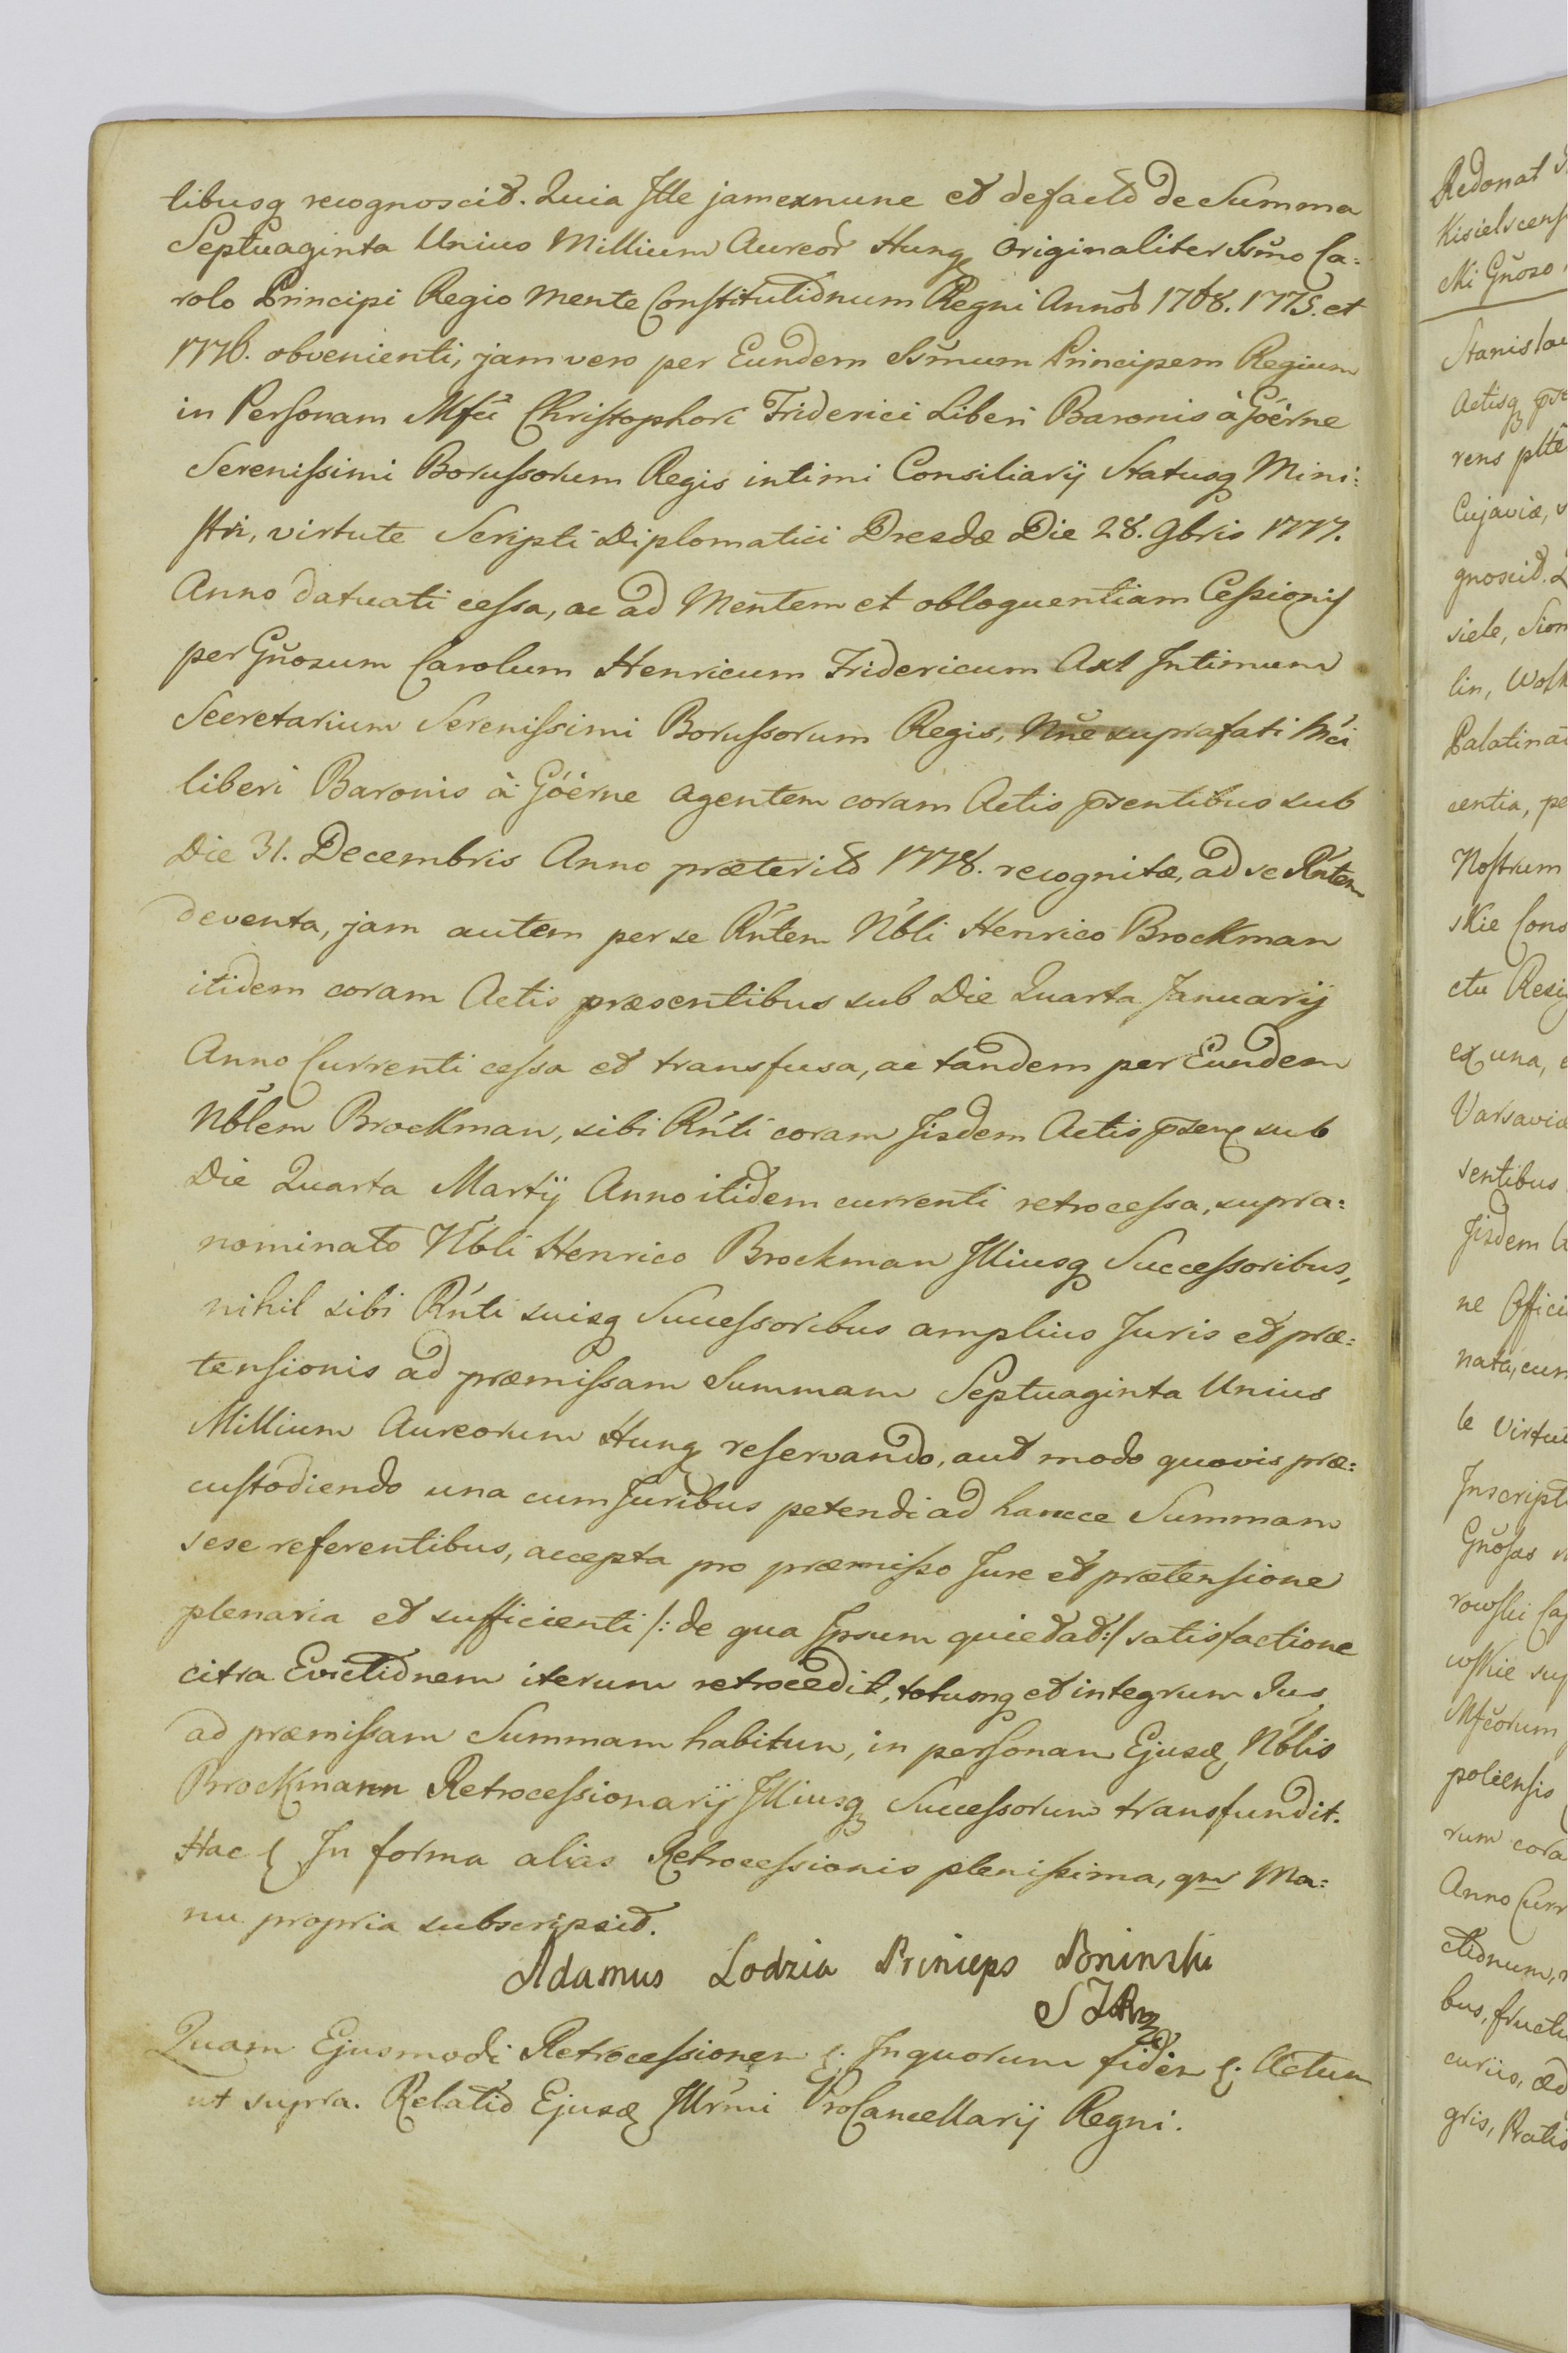 tibusq recognoscit. Quia Ille jam exnunc et defacto de Summa
Septuaginta Unius Millium Aureor Hung originaliter Ssmo Ca:
rolo Principi Regio mente Constitutionum Regni Anno 1768. 1775. et
1776. obvenienti, jam vero per Eundem Ssmum Principem Regium
in Personam Mfci Christophori Friderici Liberi Baronis à Góérne
Serenissimi Borussorum Regis intimi Consiliarij Statusq Mini:
stri, virtute Scripti Diplomatici Dresdæ Die 28. 9bris 1777.
Anno datuati cessa, ac ad Mentem et obloquentiam Cessionis
per Gnosum Carolum Henricum Fridericum Axt Intimum
Secretarium Serenissimi Borussorum Regis, Nne suprafati Mci
liberi Baronis à Góérne agentem coram Actis prsentibus sub
Die 31. Decembris Anno præterito 1778. recognitæ, ad se Rntem
deventa, jam autem per se Rntem Nbli Henrico Brockman
itidem coram Actis præsentibus sub Die Quarta Januarij
Anno Currenti cessa et transfusa, ac tandem per Eundem
Nblem Brockman, sibi Rnti coram Iisdem Actis prsen sub
Die Quarta Martij Anno itidem currenti retrocessa, supra:
nominato Nbli Henrico Brockman Illiusq Successoribus,
nihil sibi Rnti suisq Successoribus amplius Juris et præ:
tensionis ad præmissam Summam Septuaginta Unius
Millium Aureorum Hung reservando, aut modo quovis præ:
custodiendo una cum Juribus petendi ad hancce Summam
sese referentibus, accepta pro præmisso Jure et prætensione
plenaria et sufficienti /: de qua Ipsum quietat :/ satisfactione
citra Evictionem iterum retrocedit, totumq et integrum Jus,
ad præmissam Summam habitum, in personam Ejusd Nblis
Brockmann Retrocessionarij Illiusq Successorum transfundit.
Hac In forma alias Retrocessionis plenissima, qm Ma:
nu propria subscripsit.
Adamus Lodzia Princeps Poninski
Quam Ejusmodi Retrocessionem In quorum fidem Actum
ut supra. Relatio Ejusd Illrmi ProCancellarij Regni.
Redonat
Kisielscens
Mi Gnoso
Stanislau
Actisq præ
rens plte
Cujaviæ, v
gnoscit.
siele, Sion
lin, Wolk
Palatinat
centia, pe
Nostrum
skie Cons
ctu Resig
ex una, e
Varsaviæ
sentibus
Iisdem A
ne Offici
nata, cum
le virtut
Inscripti
Gnosas
rowski Ca
wskie sup
Mfcorum
poliensis
rum cora
Anno Curr
ctionum, r
bus, fructu
curiis, æd
gris, Pratis